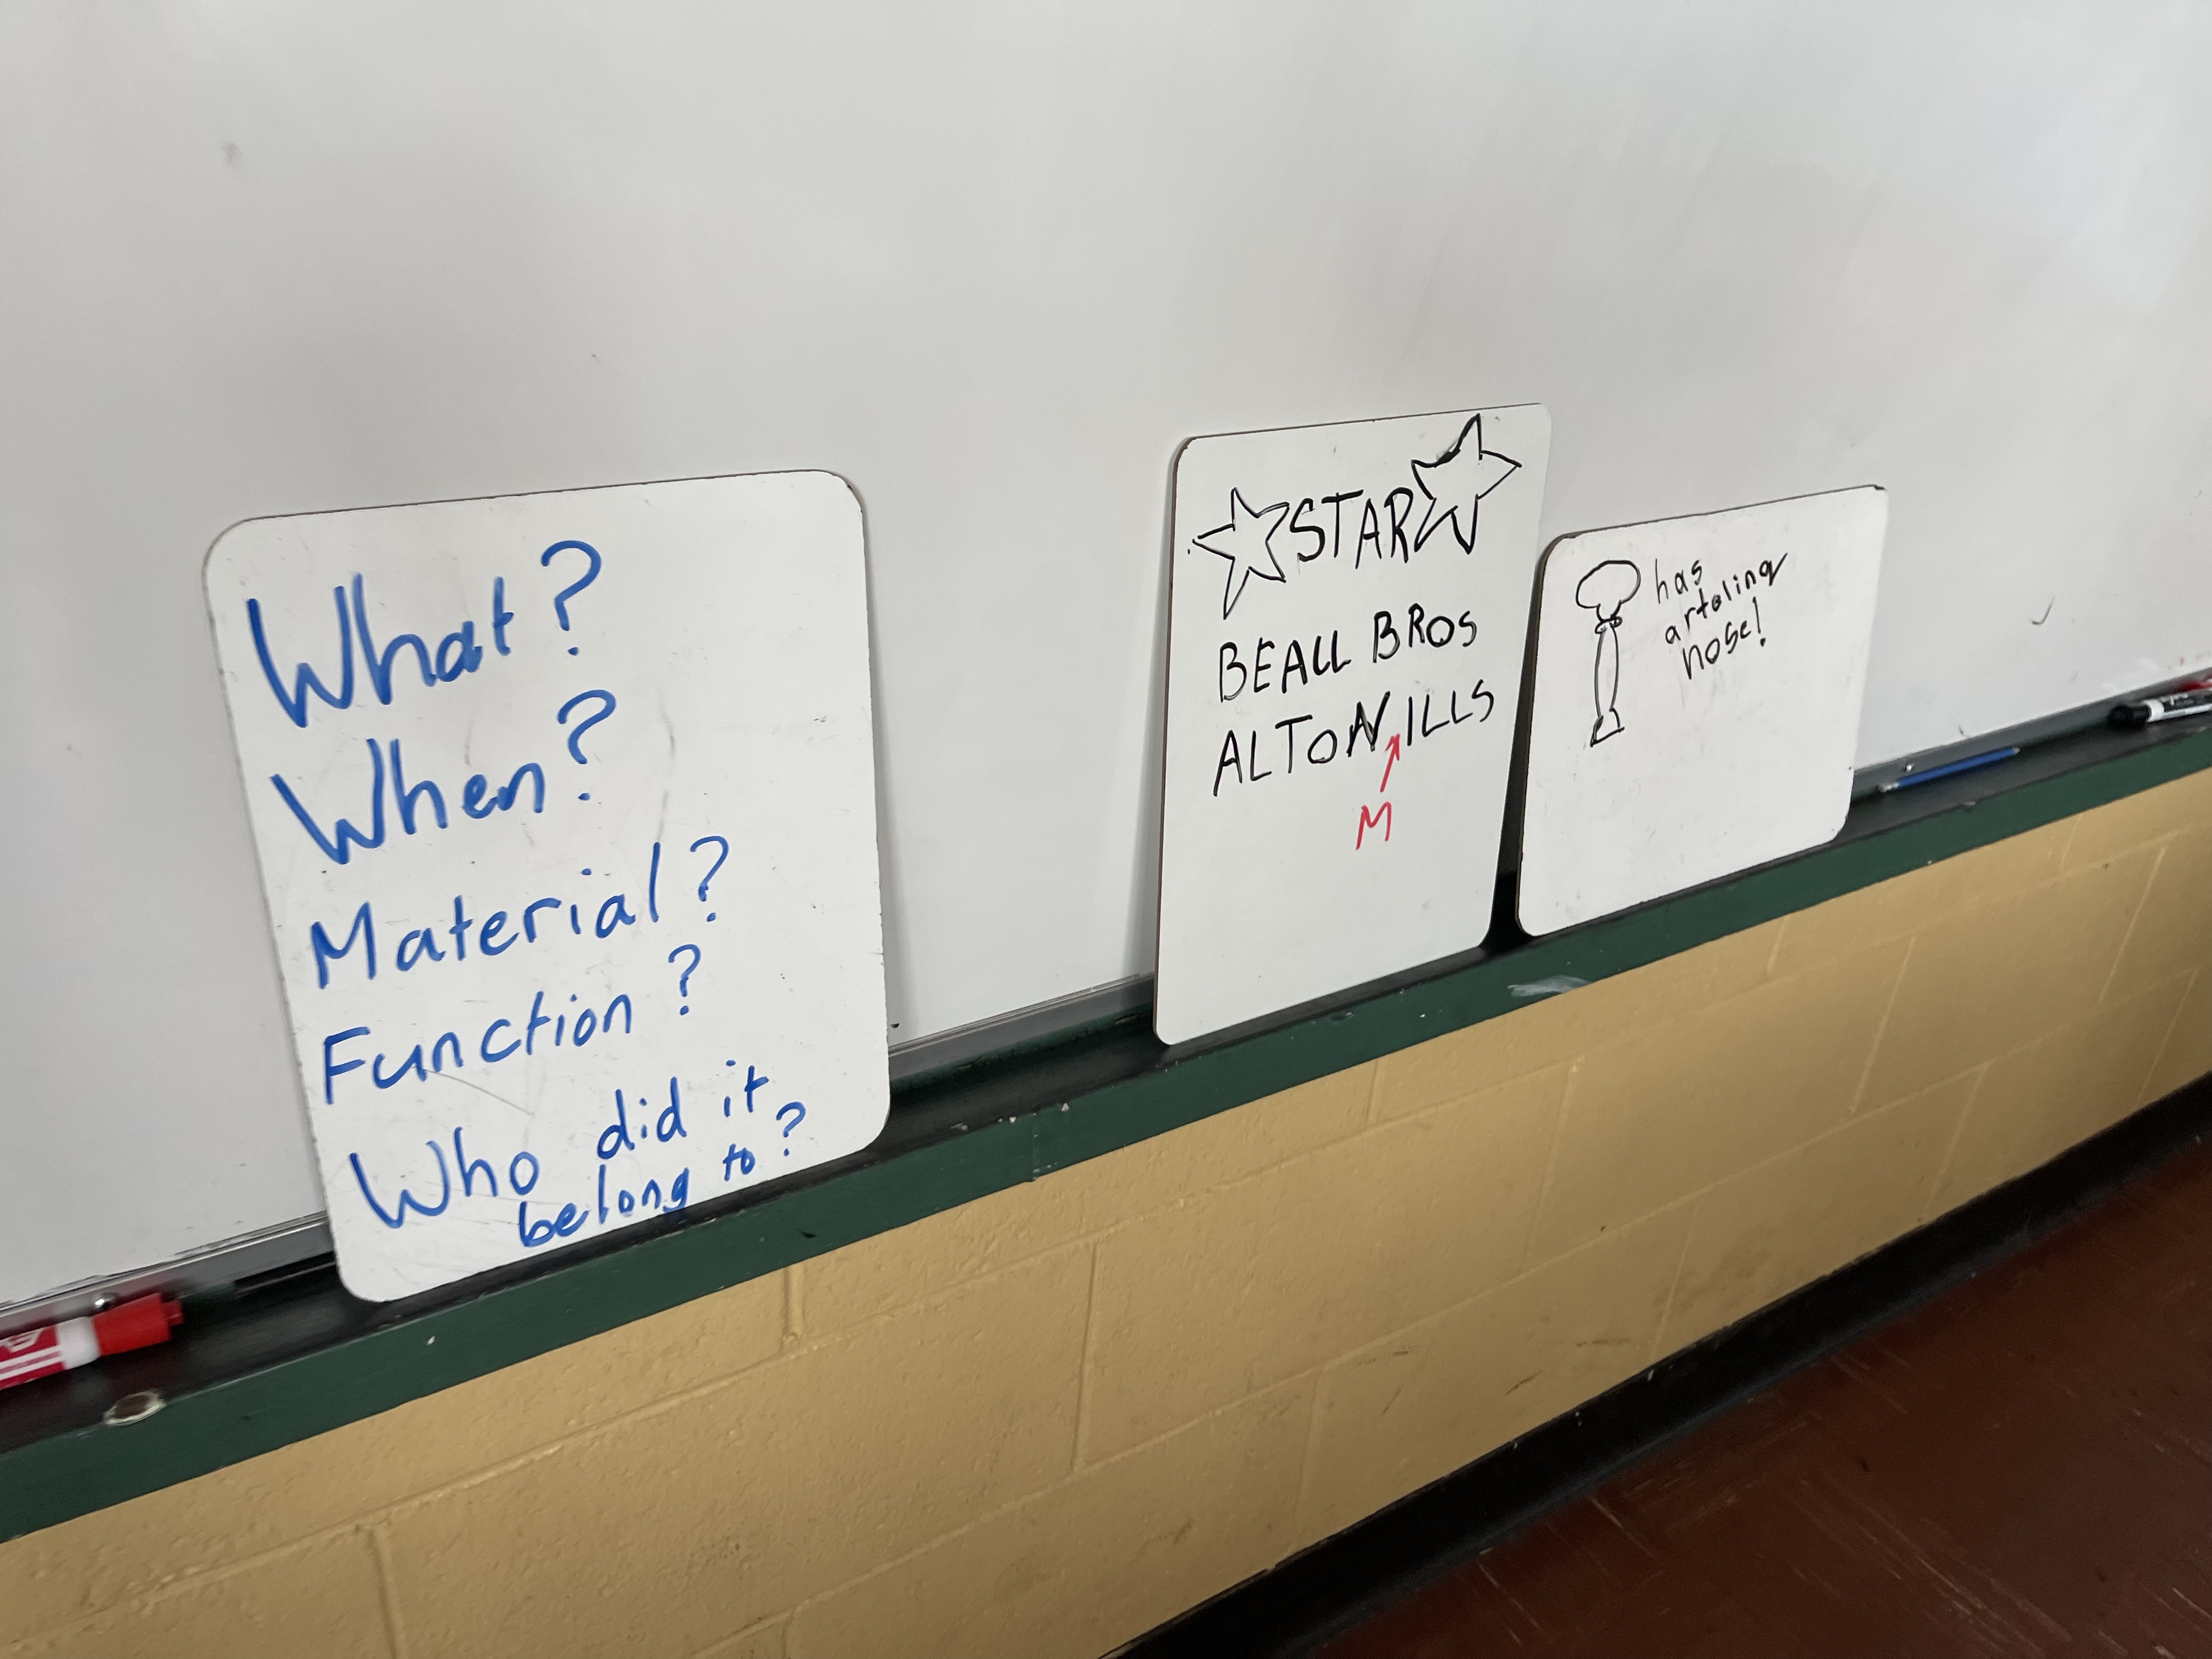 What?
When?
Material?
Function?
Who did it
belong to?
STAR
BEALL BROS
ALTON ILLS
M
has
artoling
nose!